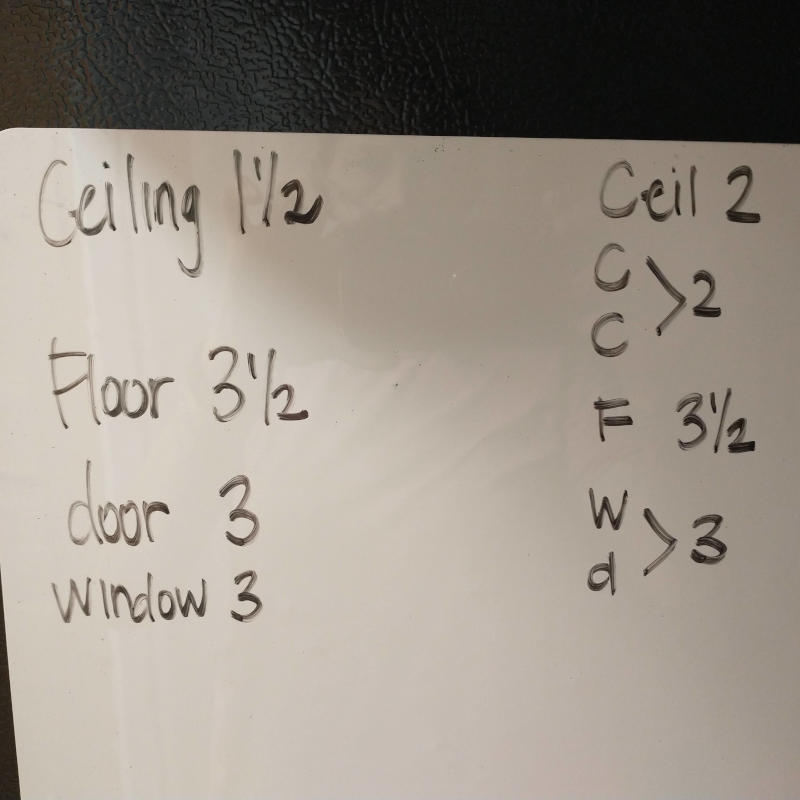 Ceiling 1 1/2
Floor 3 1/2
door 3
window 3
Ceil 2
C
C > 2
F 3 1/2
W
d > 3